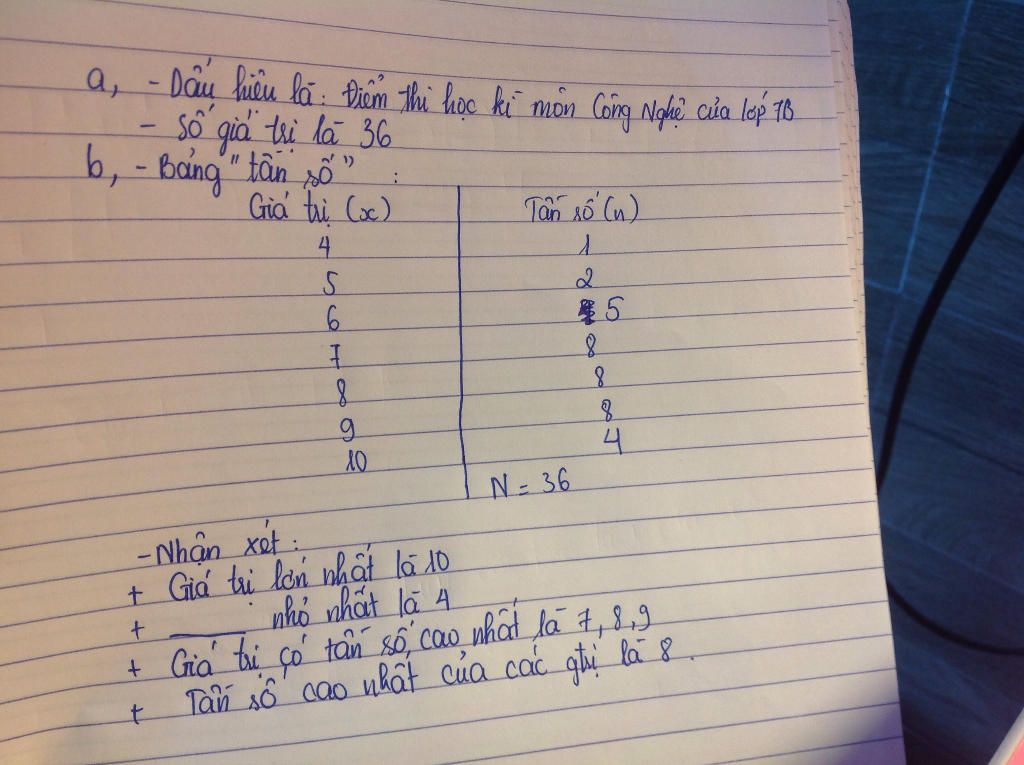 a, - Dấu hiệu là: Điểm thi học kì môn Công Nghệ của lớp 7B
- Số giá trị là 36
b, - Bảng "tần số" :
Giá trị (x) Tần số (n)
4 1
5 2
6 5
7 8
8 8
9 8
10 4
N = 36
- Nhận xét:
+ Giá trị lớn nhất là 10
+ ______ nhỏ nhất là 4
+ Giá trị có tần số cao nhất là 7, 8, 9
+ Tần số cao nhất của các gtrị là 8.